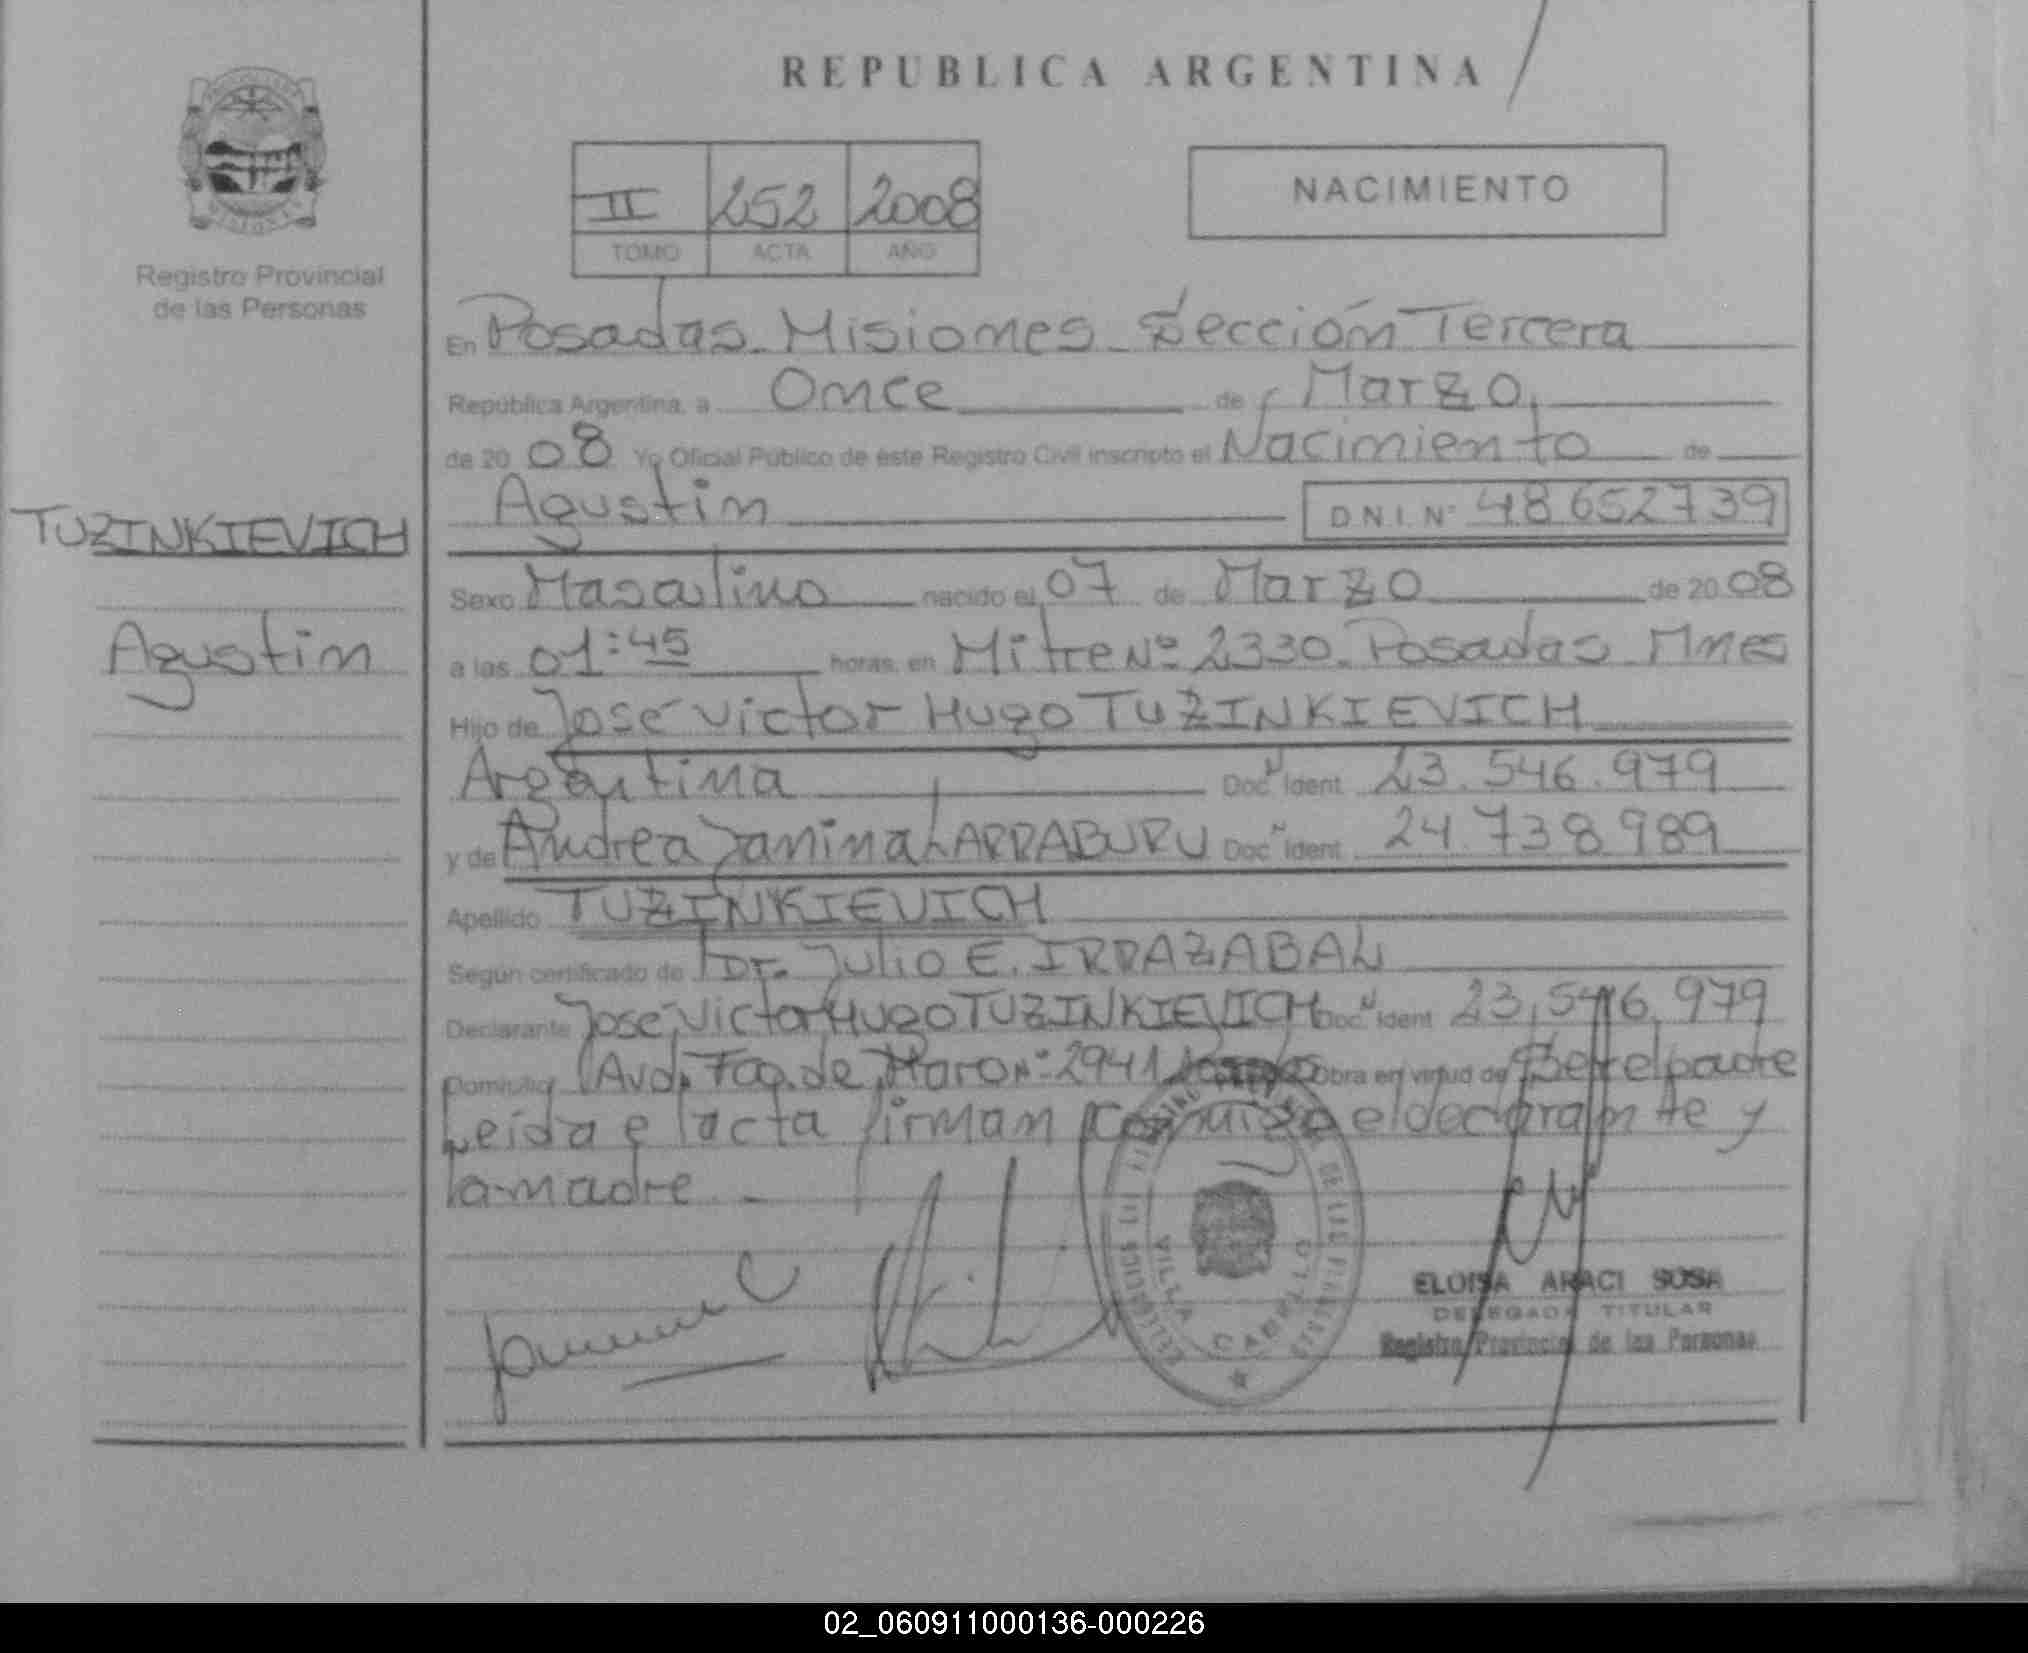 REPUBLICA ARGENTINA
II 252 2008
TOMO ACTA AÑO
NACIMIENTO
Registro Provincial
de las Personas
TUZINKIEVICH
Agustin
En Posadas Misiones Sección Tercera
República Argentina, a Once de Marzo
de 20 08 Yo Oficial Público de este Registro Civil inscripto el Nacimiento de
Agustin D.N.I. Nº 48652739
Sexo Masculino nacido el 07 de Marzo de 20 08
a las 01:45 horas, en Mitre Nº 2330. Posadas Mnes
Hijo de José Victor Hugo TUZINKIEVICH
Argentina Doc. N Ident. 23.546.979
y de Andrea Janina LARRABURU Doc. N Ident. 24.738989
Apellido TUZINKIEVICH
Según certificado de Dr. Julio E. IRRAZABAL
Declarante José Victor Hugo TUZINKIEVICH Doc. N Ident 23,546,979
Domicilio Avd. Fco. de Haro Nº 2941 Obra en virtud de Ser el padre
Leida e lacta firman conmigo el declarante y
la madre
VILLA CABELLO
ELOISA ARACI SOSA
DELEGADA TITULAR
Registro Provincial de las Personas
02_060911000136-000226